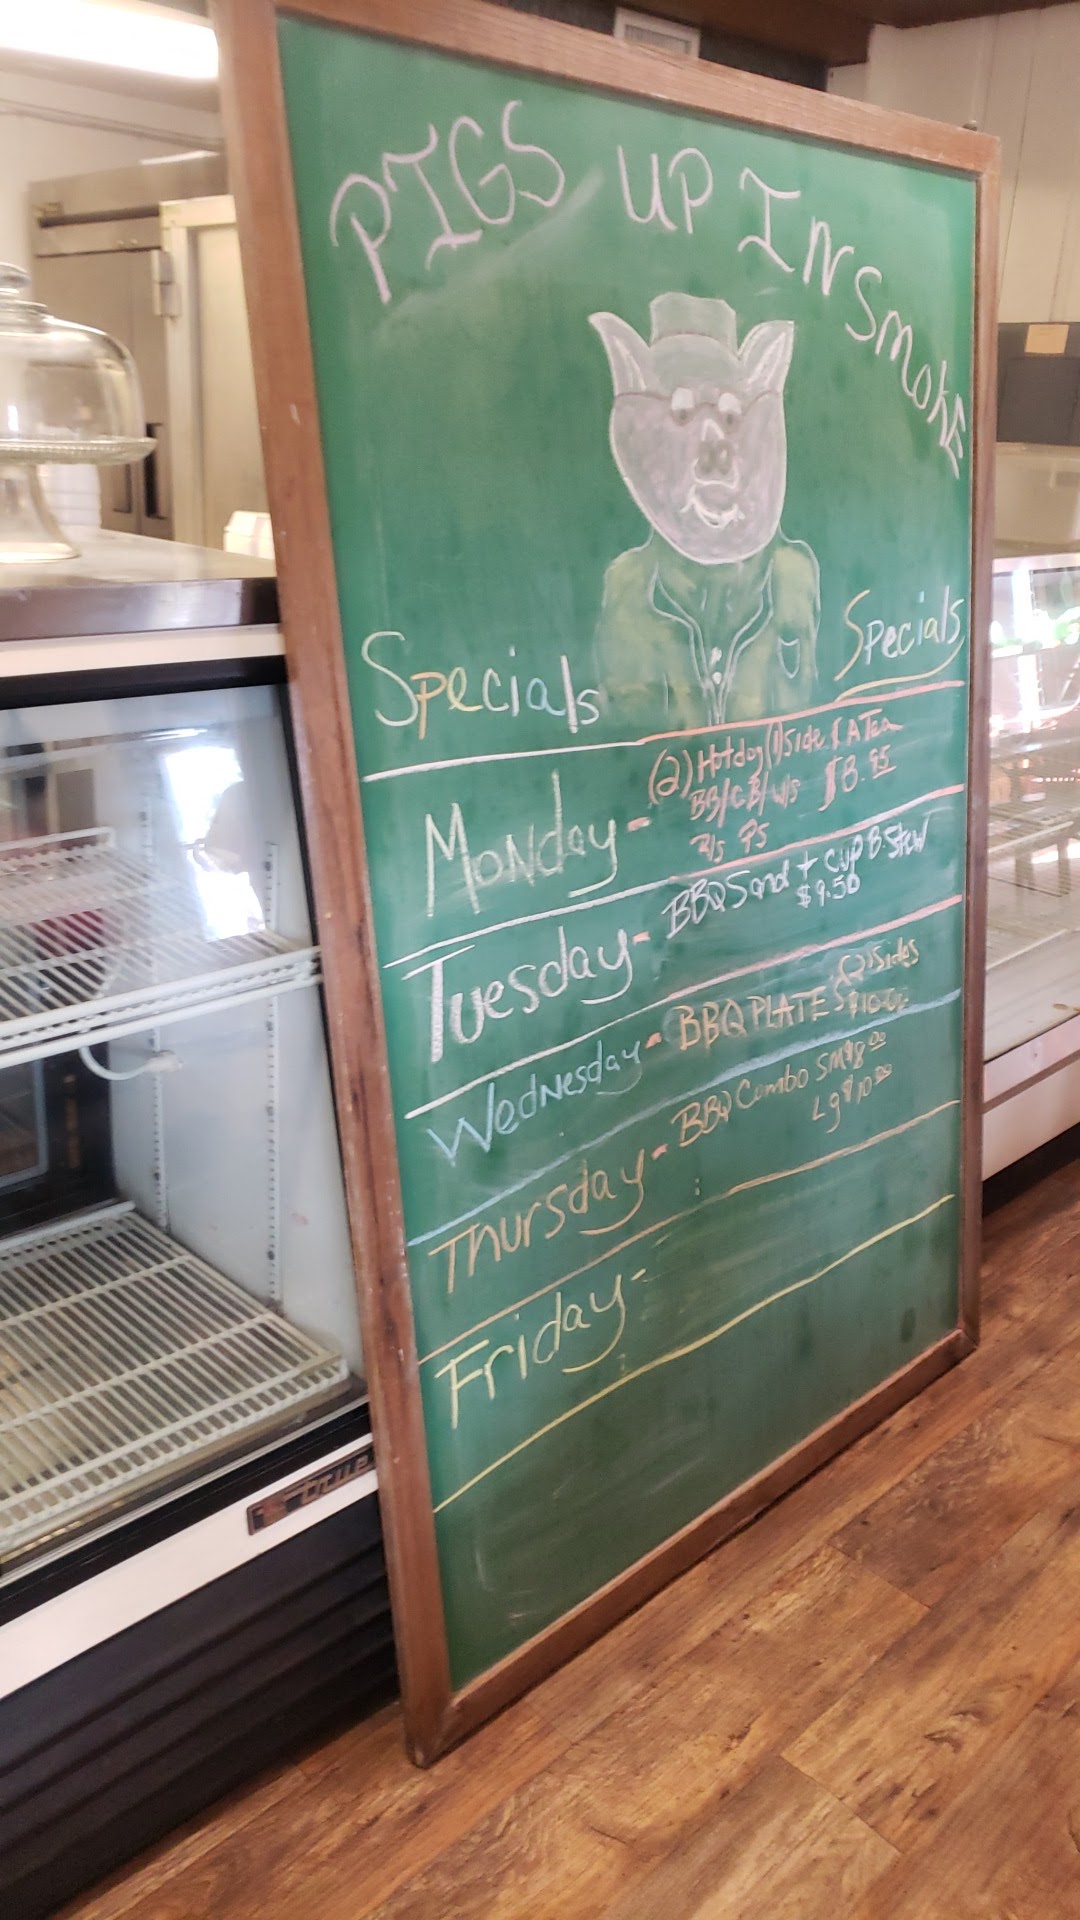 PIGS UP IN SMOKE
Specials Specials
Monday - (2) Hotdog (1) Side & A Tea
BB/CB/W/S $8.95
Tuesday - BBQ Sand + CUP B-Stew
$9.50
Wednesday - BBQ PLATE (2) Sides
$10.00
Thursday - BBQ Combo SM $8.00
Lg $10.00
Friday -
True